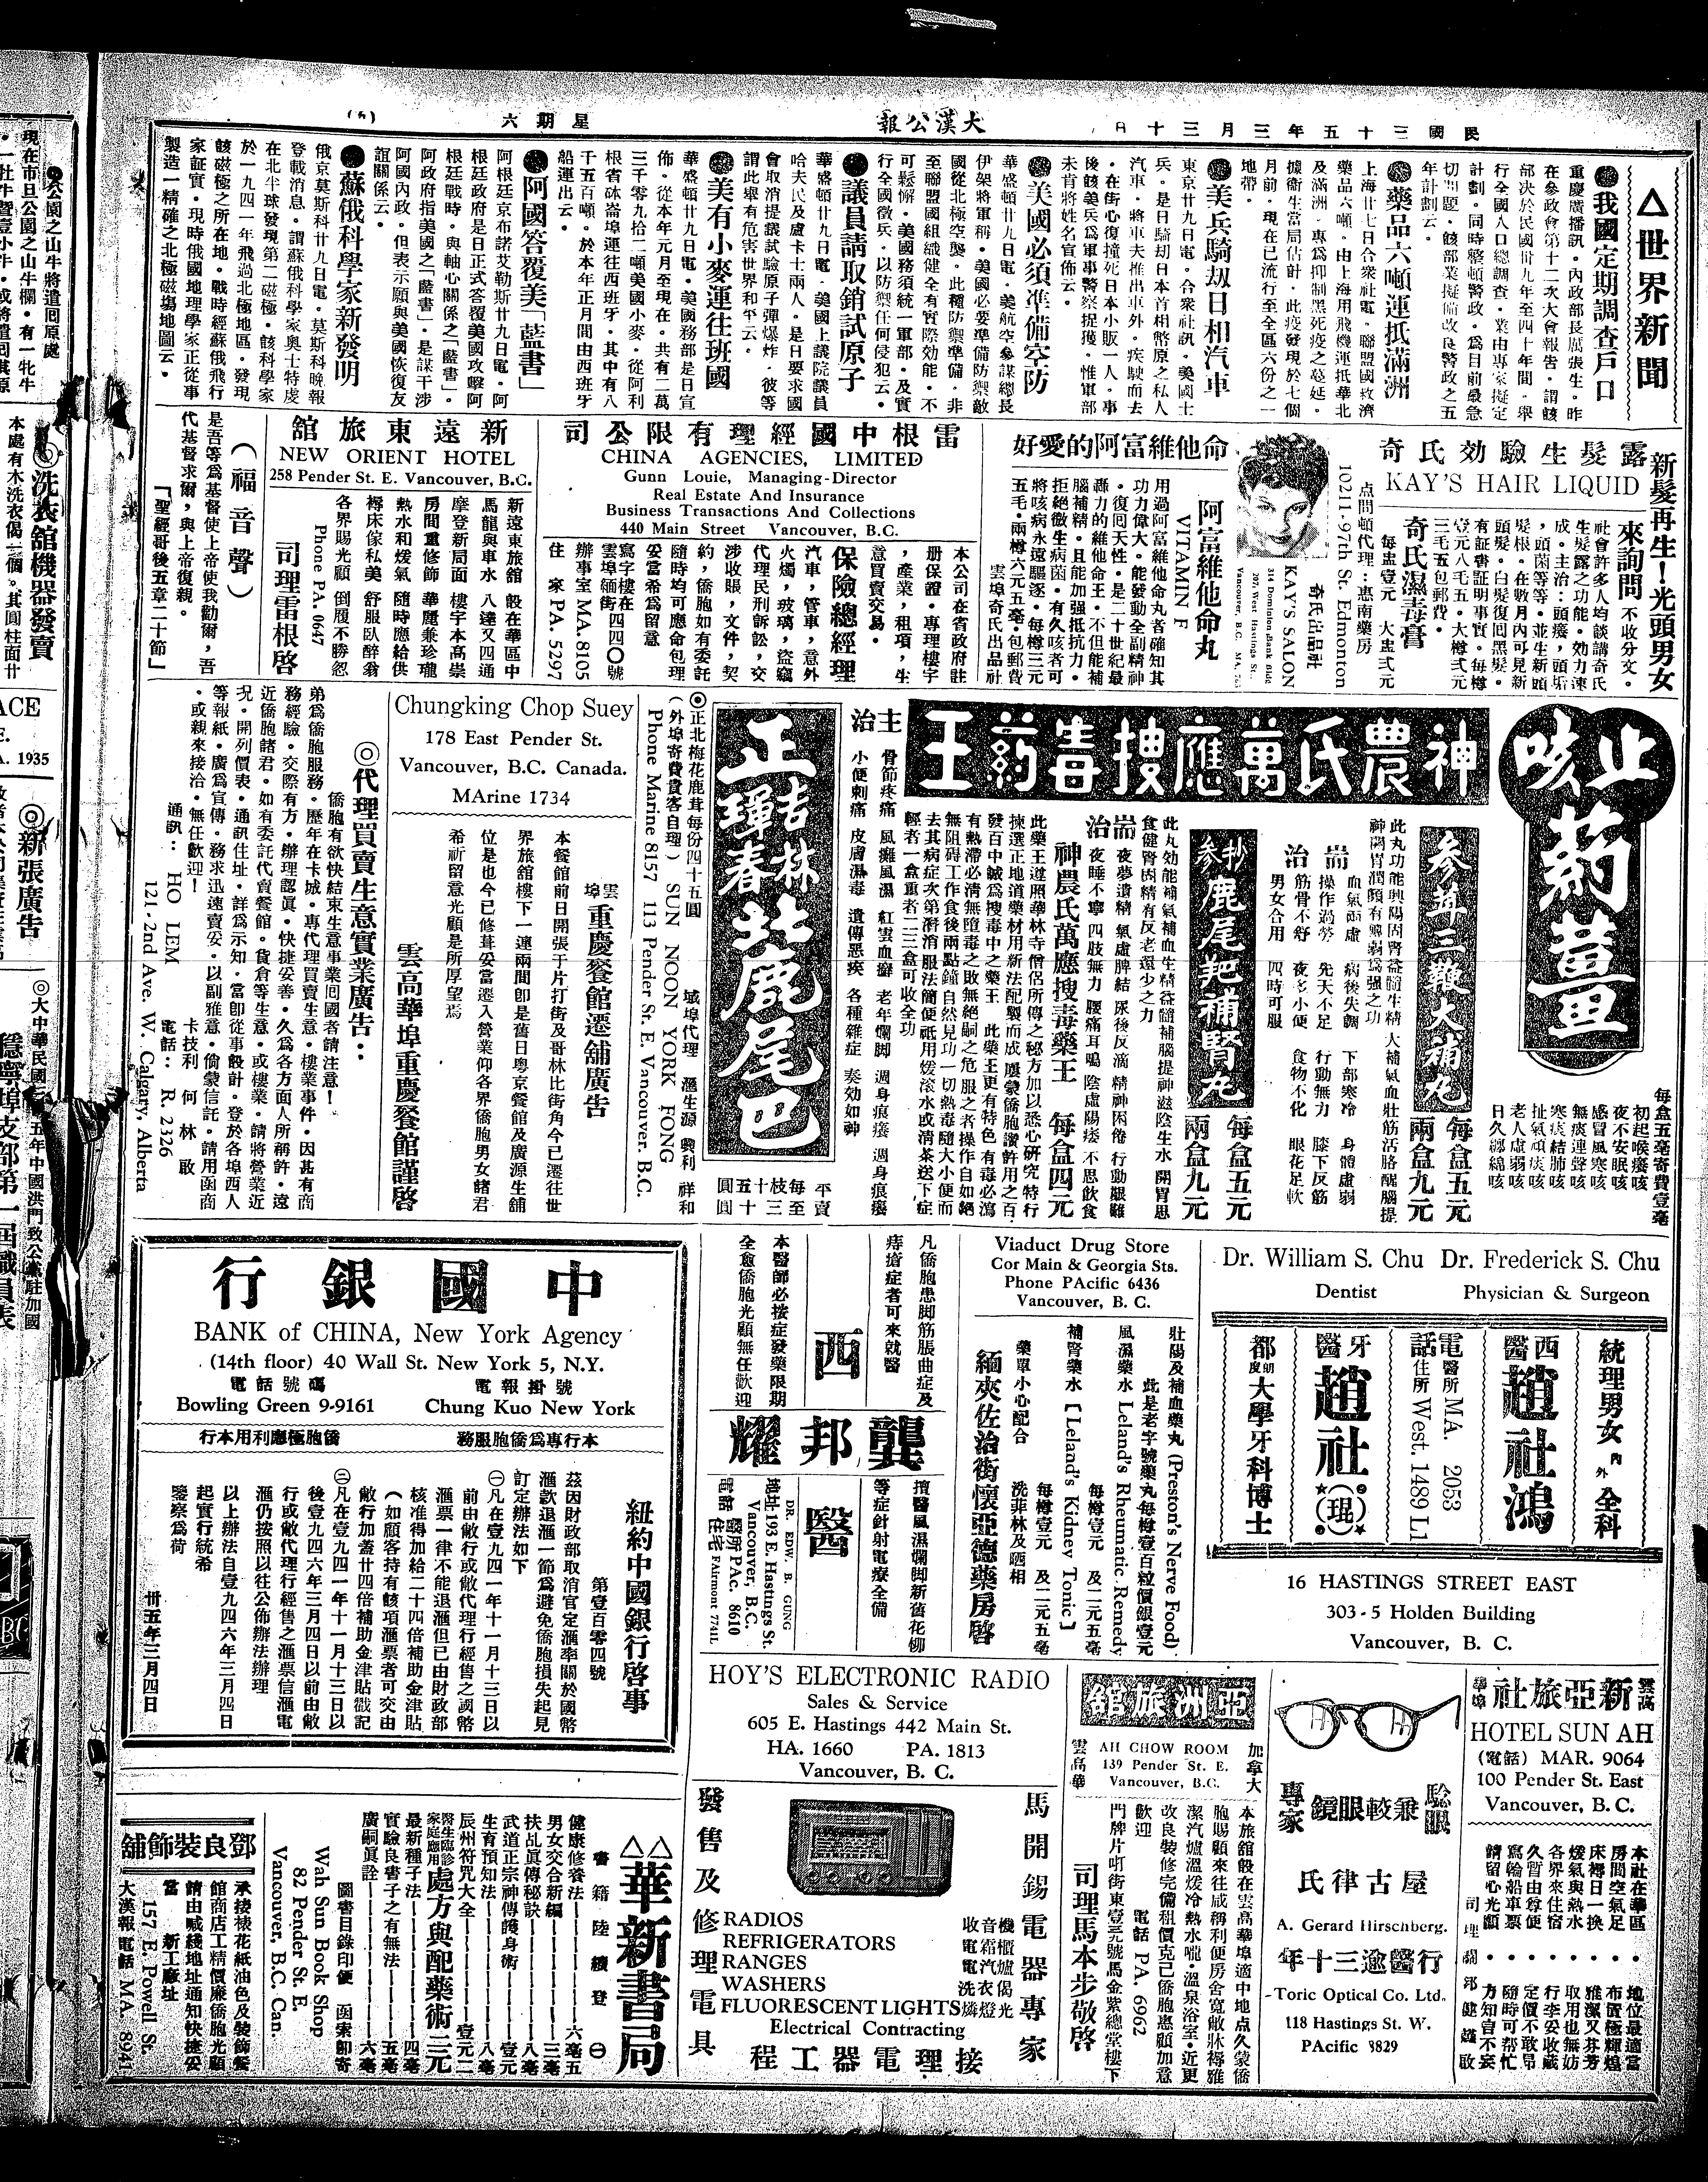 民國三十五年三月三十日
大漢公報
星期六
(五)
△世界新聞
●我國定期調查戶口
重慶廣播訊。內政部長張厲生。昨
在參政會第十二次大會報告。謂該
部決於民國卅九年至四十年間。舉
行全國人口總調查。業由專家擬定
計劃。同時整頓警政。為目前最急
切問題。該部業擬備改良警政之五
年計劃云。
●藥品六噸運抵滿洲
上海廿七日合衆社電。聯盟國救濟
藥品六噸。由上海用飛機運抵華北
及滿洲。專為抑制黑死疫之蔓延。
據衞生當局估計。此疫發現於七個
月前。現在已流行至全區六份之一
地帶。
●美兵騎刼日相汽車
東京廿九日電。合衆社訊。美國士
兵。是日騎刼日本首相幣原之私人
汽車。將車夫推出車外。疾駛而去
。在街心復撞死日本小販一人。事
後該美兵為軍事警察捉獲。惟軍部
未肯將姓名宣佈云。
●美國必須準備空防
華盛頓廿九日電。美航空參謀總長
伊架將軍稱。美國必要準備防禦敵
國從北極空襲。此種防禦準備。非
至聯盟國組織健全有實際効能。不
可鬆懈。美國務須統一軍部。及實
行全國徵兵。以防禦任何侵犯云。
●議員請取銷試原子
華盛頓廿九日電。美國上議院議員
哈夫民及盧卡士兩人。是日要求國
會取消提議試驗原子彈爆炸。彼等
謂此舉有危害世界和平云。
●美有小麥運往班國
華盛頓廿九日電。美國務部是日宣
佈。從本年元月至現在。共有二萬
三千零九拾二噸美國小麥。從阿利
根省砵崙埠運往西班牙。其中有八
千五百噸。於本年正月間由西班牙
船運出云。
●阿國答覆美「藍書」
阿根廷京布諾艾勒斯廿九日電。阿
根廷政府是日正式答覆美國攻擊阿
根廷戰時。與軸心關係之「藍書」。
阿政府指美國之「藍書」。是謀干涉
阿國內政。但表示願與美國恢復友
誼關係云。
●蘇俄科學家新發明
俄京莫斯科廿九日電。莫斯科晚報
登載消息。謂蘇俄科學家奧士特虔
在北半球發現第二磁極。該科學家
於一九四一年飛過北極地區。發現
該磁極之所在地。戰時經蘇俄飛行
家証實。現時俄國地理學家正從事
製造一精確之北極磁塲地圖云。
新髮再生!光頭男女
露髮生驗効氏奇
KAY'S HAIR LIQUID
來詢問 不收分文。
社會許多人均談講奇氏
生髮露之功能。効力速
成。主治:頭癢,頭垢
,頭菌等等。並生新頭
髮根。在數月內可見新
頭髮。白髮復囘黑髮。
有証書証明事實。每樽
壹元八毛五。大樽弍元
三毛五包郵費。
奇氏濕毒膏
每盅壹元 大盅弍元
点問頓代理:惠南藥房
10211-97th St. Edmonton
奇氏出品社
KAY'S SALON
314 Dominion Bank Bldg
207 West Hastings St.,
Vancouver, B.C.
好愛的阿富維他命
阿富維他命丸
VITAMIN F
用過阿富維他命丸者確知其
功力偉大。能發動全副精神
。復囘天性。是二十世紀最
轟力的維他命王。不但能補
腦補精。且能加强抵抗力。
拒絕微生病菌。有久咳者可
將咳病永遠驅逐。每樽三元
五毛。兩樽六元五毫。包郵費
雲埠奇氏出品社
司公限有理經國中根雷
CHINA AGENCIES, LIMITED
Gunn Louie, Managing-Director
Real Estate And Insurance
Business Transactions And Collections
440 Main Street Vancouver, B.C.
本公司在省政府註
册保證。專理樓宇
,產業,租項,生
意買賣交易。
保險總經理
汽車,管車,意外
火燭,玻璃,盜竊
代理民刑訴訟,交
涉收賬,文件,契
約,僑胞如有委託
隨時均可應命包理
妥當希為留意
寫字樓在
雲埠緬街四四〇號
辦事室 MA. 8105
住家 PA. 5297
館旅東遠新
NEW ORIENT HOTEL
258 Pender St. E. Vancouver, B.C.
新遠東旅舘 設在華區中
馬龍與車水 八達又四通
摩登新局面 樓字本高崇
房間重修飾 華麗兼珍瓏
熱水和煖氣 隨時應給供
褥床傢私美 舒服臥醉翁
各界賜光顧 倒履不勝忽
Phone PA. 0647
司理雷根啓
(福音聲)
是吾等為基督使上帝使我勸爾,吾
代基督求爾,與上帝復親。
「聖經哥後五章二十節」
止咳薊薑
每盒五毫寄費壹毫
初起喉癢咳
夜不安眠咳
感冒風寒咳
無痰連聲咳
寒痰結肺咳
扯氣頑痰咳
老人虛弱咳
日久纏綿咳
王藥毒搜應萬氏農神
參茸三鞭大補丸
每盒五元
兩盒九元
此丸功能興陽固腎益髓生精大補氣血壯筋活胳醒腦提
耑治
血氣両虛 病後失調 下部寒冷 身體虛弱
操作過勞 先天不足 行動無力 膝下反筋
筋骨不舒 夜多小便 食物不化 眼花足軟
男女合用 四時可服
參抄鹿尾羓補腎丸
每盒五元
兩盒九元
此丸効能補氣補血生精益髓補腦提神滋陰生水 開胃思
食健腎固精有反老還少之力
耑治
夜夢遺精 氣虛脾結 尿後反滴 精神困倦 行動艱難
夜睡不寧 四肢無力 腰痛耳鳴 陰虛陽痿 不思飲食
神農氏萬應搜毒藥王 每盒四元
此藥王遵照華林寺僧侶所傳之秘方加以悉心研究特行
揀選正地道藥材用新法配製而成 屢蒙僑胞讚許用之百
發百中誠為搜毒中之藥王 此藥王更有特色 有毒必瀉
有熱滯必清無墮毒之敗無絕嗣之危服之者操作自如絕
無阻碍工作食後兩點鐘自然見功一切熱毒隨大小便而
去其病症次第潛消服法簡便祇用煖滾水或清茶送下症
輕者一盒重者二三盒可收全功
主治
骨節疼痛 風癱風濕 紅雲血癬 老年爛脚 週身痕癢 週身痕癢
小便刺痛 皮膚濕毒 遺傳惡疾 各種雜症 奏効如神
正吉林琿春北鹿尾巴
平賣
每枝十五圓
至三十五圓
◎正北梅花鹿茸每份四十五圓
(外埠寄費貴客自理)
SUN NOON YORK FONG
Phone Marine 8157 113 Pender St. E. Vancouver. B.C.
域埠代理 滙生源 興利 祥和
Chungking Chop Suey
178 East Pender St.
Vancouver, B.C. Canada.
MArine 1734
雲埠重慶餐館遷舖廣告
本餐館前日開張于片打街及哥林比街角今已遷往世
界旅舘樓下一連兩間即是舊日粤京餐館及廣源生舖
位是也今已修葺妥當遷入營業仰各界僑胞男女諸君
希祈留意光顧是所厚望焉
雲高華埠重慶餐館謹啓
◎代理買賣生意實業廣告:
僑胞有欲快結束生意事業囘國者請注意!
弟為僑胞服務。歷年在卡城。專代理買賣生意。樓業事件。因甚有商
務經驗。交際有方。辦理認真。快捷妥善。久為各方面人所稱許。遠
近僑胞諸君。如有委託代賣餐館。貨倉等生意。或樓業。請將營業近
況。開列價表。通訊住址。詳為示知。當即從事設計。登於各埠西人
等報紙。廣為宣傳。務求迅速賣妥。以副雅意。倘蒙信託。請用函商
。或親來接洽。無任歡迎!
卡技利 何林啟
通訊: HO LEM 電話: R. 2326
121-2nd Ave. W. Calgary, Alberta
Dr. William S. Chu Dr. Frederick S. Chu
Dentist Physician & Surgeon
統理男女內外全科
西醫趙社鴻
電話
醫所 MA. 2053
住所 West. 1489 L1
牙醫趙社(琨)
都朗度大學牙科博士
16 HASTINGS STREET EAST
303-5 Holden Building
Vancouver, B. C.
Viaduct Drug Store
Cor Main & Georgia Sts.
Phone PAcific 6436
Vancouver, B. C.
壯陽及補血藥丸 (Preston's Nerve Food)
此是老字號藥丸每樽壹百粒價銀壹元
風濕藥水 Leland's Rheumatic Remedy
每樽壹元 及二元五毫
補腎藥水 [Leland's Kidney Tonic]
每樽壹元 及二元五毫
藥單小心配合 洗菲林及晒相
緬夾佐治街懷亞德藥房啓
凡僑胞患脚筋脹曲症及
痔瘡症者可來就醫
本醫師必按症發藥限期
全愈僑胞光顧無任歡迎
西醫
耀邦龔
擅醫風濕爛脚新舊花柳
等症針射電療全備
DR. EDW. B. GUNG
地址 193 E. Hastings St.
Vancouver, B.C.
電話 醫所 PAc. 8610
住宅 FAirmont 7741L
行銀國中
BANK of CHINA, New York Agency
(14th floor) 40 Wall St. New York 5, N.Y.
電話號碼 電報掛號
Bowling Green 9-9161 Chung Kuo New York
行本用利應極胞僑 務服胞僑為專行本
紐約中國銀行啓事
第壹百零四號
茲因財政部取消官定滙率關於國幣
滙款退滙一節為避免僑胞損失起見
訂定辦法如下
㊀凡在壹九四一年十一月十三日以
前由敝行或敝代理行經售之國幣
滙票一律不能退滙但已由財政部
核准得加給二十四倍補助金津貼
(如顧客持有該項滙票者可交由
敝行加蓋廿四倍補助金津貼戳記
㊁凡在壹九四一年十一月十三日以
後壹九四六年三月四日以前由敝
行或敝代理行經售之滙票信滙電
滙仍按照以往公佈辦法辦理
以上辦法自壹九四六年三月四日
起實行統希
鑒察為荷
卅五年三月四日
雲高華埠
社旅亞新
HOTEL SUN AH
(電話) MAR. 9064
100 Pender St. East
Vancouver, B. C.
本社在華區。地位最適當
房間空氣足。布置極輝煌
床褥日一換。雅潔又芬芳
煖氣與熱水。取用也無妨
各界來住宿。行李妥收藏
久暫由尊便。定價不敢昂
寫輪船車票。隨時可幫忙
請留心光顧。方知言不妄
驗眼兼較眼鏡專家
氏律古屋
A. Gerard Hirschberg.
年十三逾醫行
Toric Optical Co. Ltd.
118 Hastings St. W.
PAcific 9829
舘旅洲亞
加拿大
雲高華
AH CHOW ROOM
139 Pender St. E.
Vancouver, B.C.
本旅舘設在雲高華埠適中地点久蒙僑
胞賜顧來往咸稱利便房舍寬敞牀褥雅
潔汽爐溫煖冷熱水喉。溫泉浴室。近更
改良裝修完備租價克己僑胞惠顧加意
歡迎 電話 PA. 6962
門牌片叮街東壹三九號馬金紫總堂樓下
司理馬本步敬啓
HOY'S ELECTRONIC RADIO
Sales & Service
605 E. Hastings 442 Main St.
HA. 1660 PA. 1813
Vancouver, B. C.
馬開錫電器專家
發售及修理電具
RADIOS 收音機
REFRIGERATORS 電霜櫃
RANGES 電汽爐
WASHERS 洗衣偈
FLUORESCENT LIGHTS 燐燈光
Electrical Contracting
程工器電理接
△△華新書局
書籍陸續登 ㊀
健康修養法——六毫五
男女交合新編——三毫
扶乩真傳秘訣——八毫
武道正宗神傳護身術——壹元
生育預知法——八毫
辰州符咒大全——壹元二
醫生臨診家庭應用處方與配藥術 三元
最新種子法——四毫
實驗良書子之有無法——五毫
廣嗣真詮——六毫
圖書目錄印便 函索即寄
Wah Sun Book Shop
82 Pender St. E.
Vancouver, B.C. Can.
舖飾裝良鄧
承接裱花紙油色及裝飾餐
館商店工精價廉僑胞光顧
請由喊綫地址通知快捷妥
當 新工廠址
157 E. Powell St.
大漢報電話 MA. 8941
●公園之山牛將遣囘原處
現在市旦公園之山牛欄。有一牝牛
◎洗衣舘機器發賣
本處有木洗衣偈一個。其圓柱面廿
◎新張廣告
◎大中華民國三十五年中國洪門致公黨駐加國